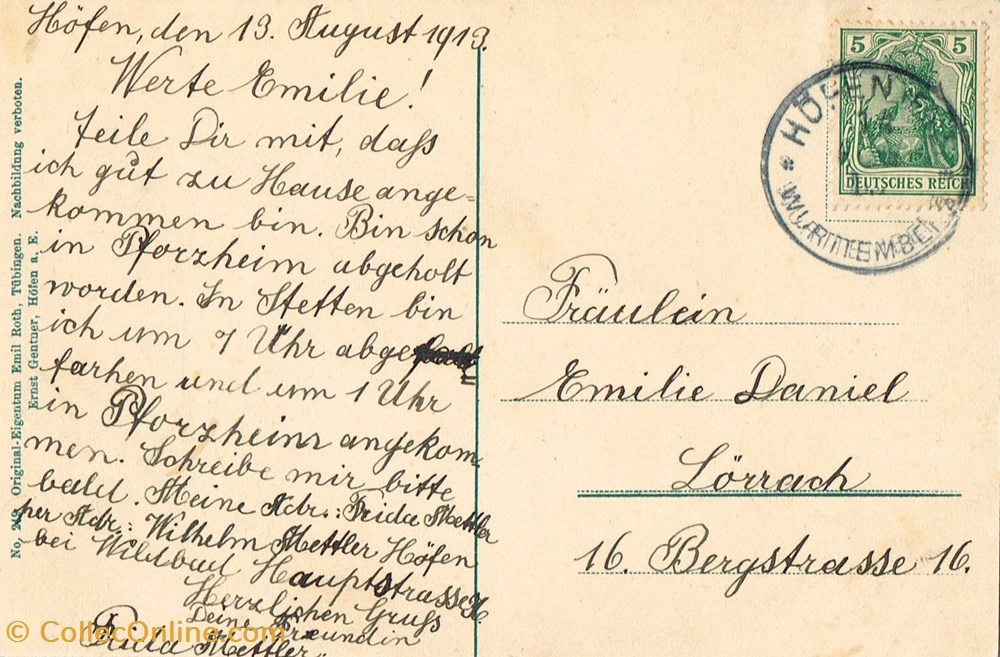 Höfen, den 13. August 1913.
Werte Emilie!
teile Dir mit, dass
ich gut zu Hause ange=
kommen bin. Bin schon
in Pforzheim abgeholt
worden. In Stetten bin
ich um 7 Uhr abge
farhen und um 1 Uhr
in Pforzheim angekom-
men. Schreibe mir bitte
bald. Meine Adr.: Frida Mettler
per Adr.: Wilhelm Mettler Höfen
bei Wildbad Hauptstrasse
Herzlichen Gruss
Deine Freundin
Frida Mettler.
No. 249 Original-Eigentum Emil Roth, Tübingen. Nachbildung verboten.
Ernst Gentner, Höfen a. E.
5 5
DEUTSCHES REICH
HÖFEN
WÜRTTEMBERG
Fräulein
Emilie Daniel
Lörrach
16. Bergstrasse 16.
© CollecOnline.com